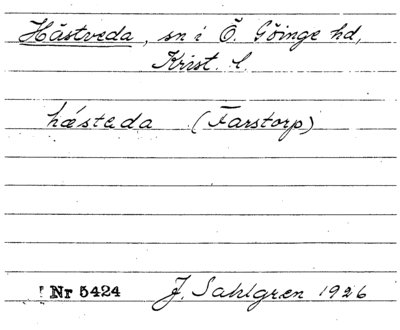 Hästveda, sn i Ö. Göinge hd,
Krist. l.
hǽstada (Farstorp)
Nr 5424 J. Sahlgren 1926